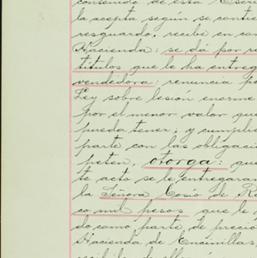 consenso de esta Escri
la acepta según se contie
resguardo, recibe en can
Hacienda: se dá por re
títulos que le ha entreg
vendedora: renuncia po
Ley sobre lesión enorme
por el menor valor que
pueda tener; y cumplie
parte con las obligacio
peten, otorga: que
te acto se le entregaran
la Señora Cosío de R
co mil pesos que le
do como parte de precio
Hacienda de Encinillas,